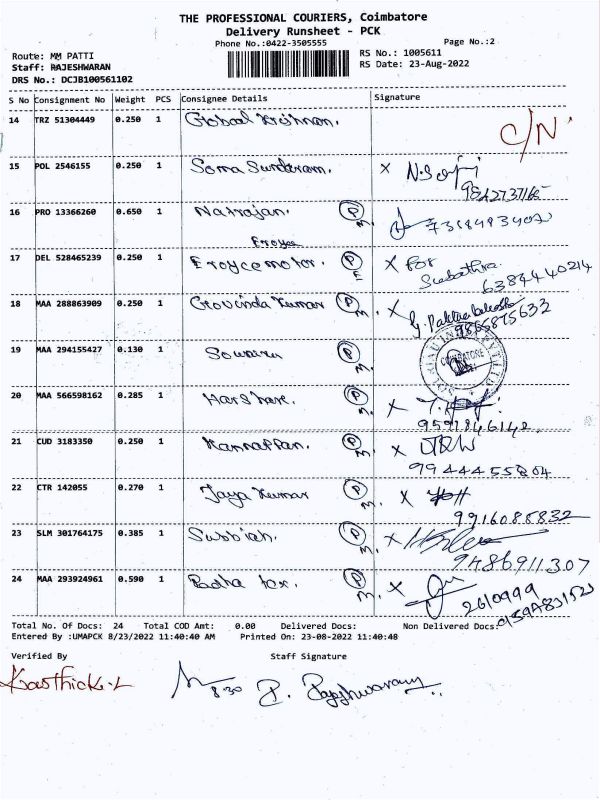 THE PROFESSIONAL COURIERS, Coimbatore
Delivery Runsheet - PCK
Phone No.:0422-3505555
Page No.:2
Route: MM PATTI
RS No.: 1005611
Staff: RAJESHWARAN
RS Date: 23-Aug-2022
DRS No.: DCJB100561102
S No Consignment No Weight PCS Consignee Details Signature
14 TRZ 51304449 0.250 1 C/N
15 POL 2546155 0.250 1 Soma Sundaram. X
16 PRO 13366260 0.650 1 Natrajan. P M.
17 DEL 528465239 0.250 1 Eroyce motor. P E X for
6384440214
18 MAA 288863909 0.250 1 Govinda Kumar P M. X
9865875632
19 MAA 294155427 0.130 1 P M.
COIMBATORE
20 MAA 566598162 0.285 1 P M. X
9591846142
21 CUD 3183350 0.250 1 Kannappan. P M. X
9944455804
22 CTR 142055 0.270 1 Jaya Kumar P M. X
9916085832
23 SLM 301764175 0.385 1 Subbiah. P M. X
9486911307
24 MAA 293924961 0.590 1 Radha tex. P M. X
Total No. Of Docs: 24 Total COD Amt: 0.00 Delivered Docs: Non Delivered Docs:
Entered By :UMAPCK 8/23/2022 11:40:40 AM Printed On: 23-08-2022 11:40:48
Verified By Staff Signature
Karthick.L 8.30